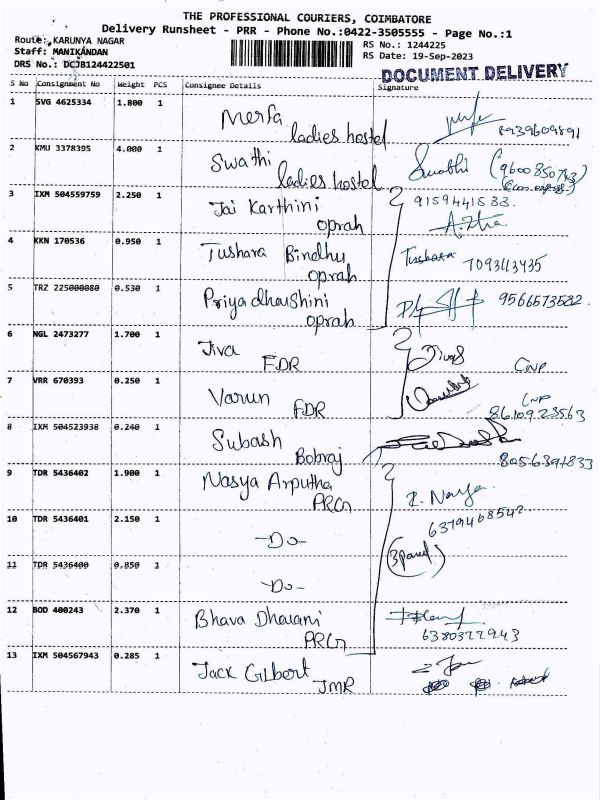 THE PROFESSIONAL COURIERS, COIMBATORE
Delivery Runsheet - PRR - Phone No.:0422-3505555 - Page No.:1
Route: KARUNYA NAGAR
RS No.: 1244225
Staff: MANIKANDAN
RS Date: 19-Sep-2023
DRS No.: DCJB124422501
DOCUMENT DELIVERY
S No Consignment No Weight PCS Consignee Details Signature
1 SVG 4625334 1.800 1 Merfa
ladies hostel 8939609891
2 KMU 3378395 4.000 1 Swathi Swathi
ladies hostel
3 IXM 504559759 2.250 1 Jai Karthini
oprah
4 KKN 170536 0.950 1 Tushara Bindhu Tushara
oprah
5 TRZ 225000080 0.530 1 Priyadharshini
oprah
6 NGL 2473277 1.700 1 Jiva
FDR CNP
7 VRR 670393 0.250 1 Varun
FDR CNP
8 IXM 504523938 0.240 1 Subash
Bobraj 8056391833
9 TDR 5436402 1.900 1 Nasya Arputha
PRGn
10 TDR 5436401 2.150 1 -Do-
11 TDR 5436400 0.850 1 -Do-
12 BOD 400243 2.370 1 Bhava Dharani
PRGn
13 IXM 504567943 0.285 1 Jack Gilbert
JMR